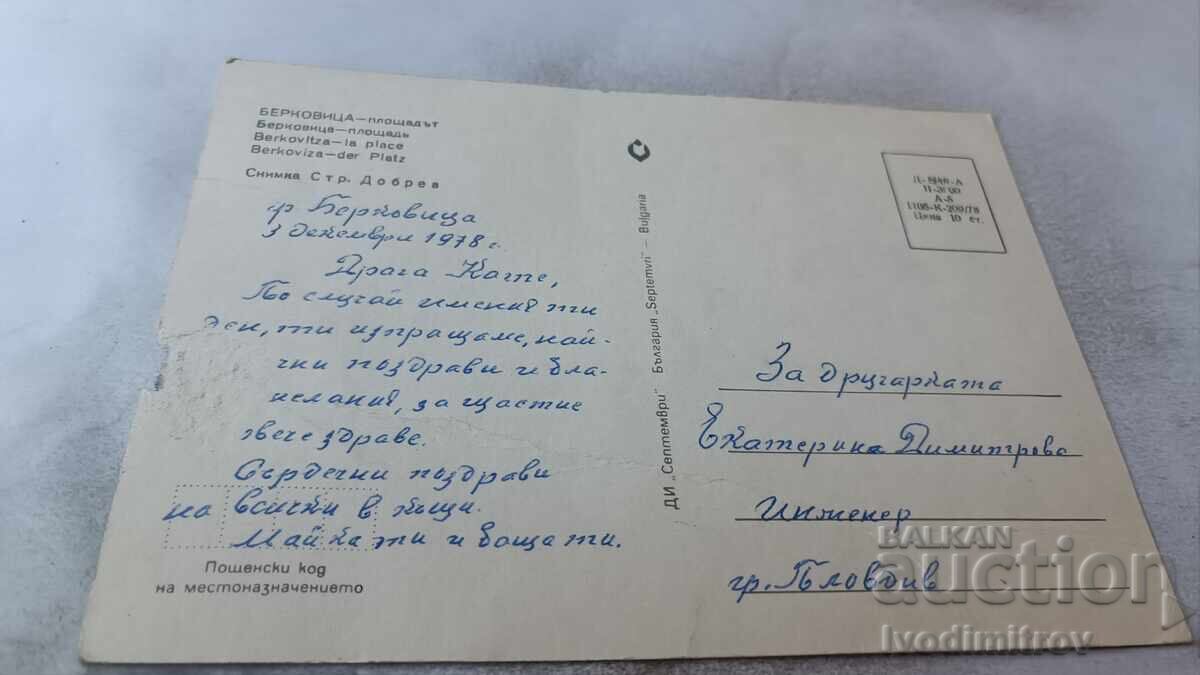 БЕРКОВИЦА—площадът
Берковица—площадь
Berkovitza—la place
Berkoviza—der Platz
Снимка Стр. Добрев
гр Берковица
3 декември 1978 г.
Драга Кате,
По случай имения ти
ден, ти изпращаме, най-
чни поздрави и бла-
желания, за щастие
здраве.
Сърдечни поздрави
на всички в къщи.
Майка ти и баща ти.
Пощенски код
на местоназначението
ДИ „Септември" България „Septemvri" — Bulgaria
А-8
Цена 10 ст.
За другарката
Екатерина Димитрова
Инженер
гр. Пловдив
BALKAN
auction
Ivodimitrov